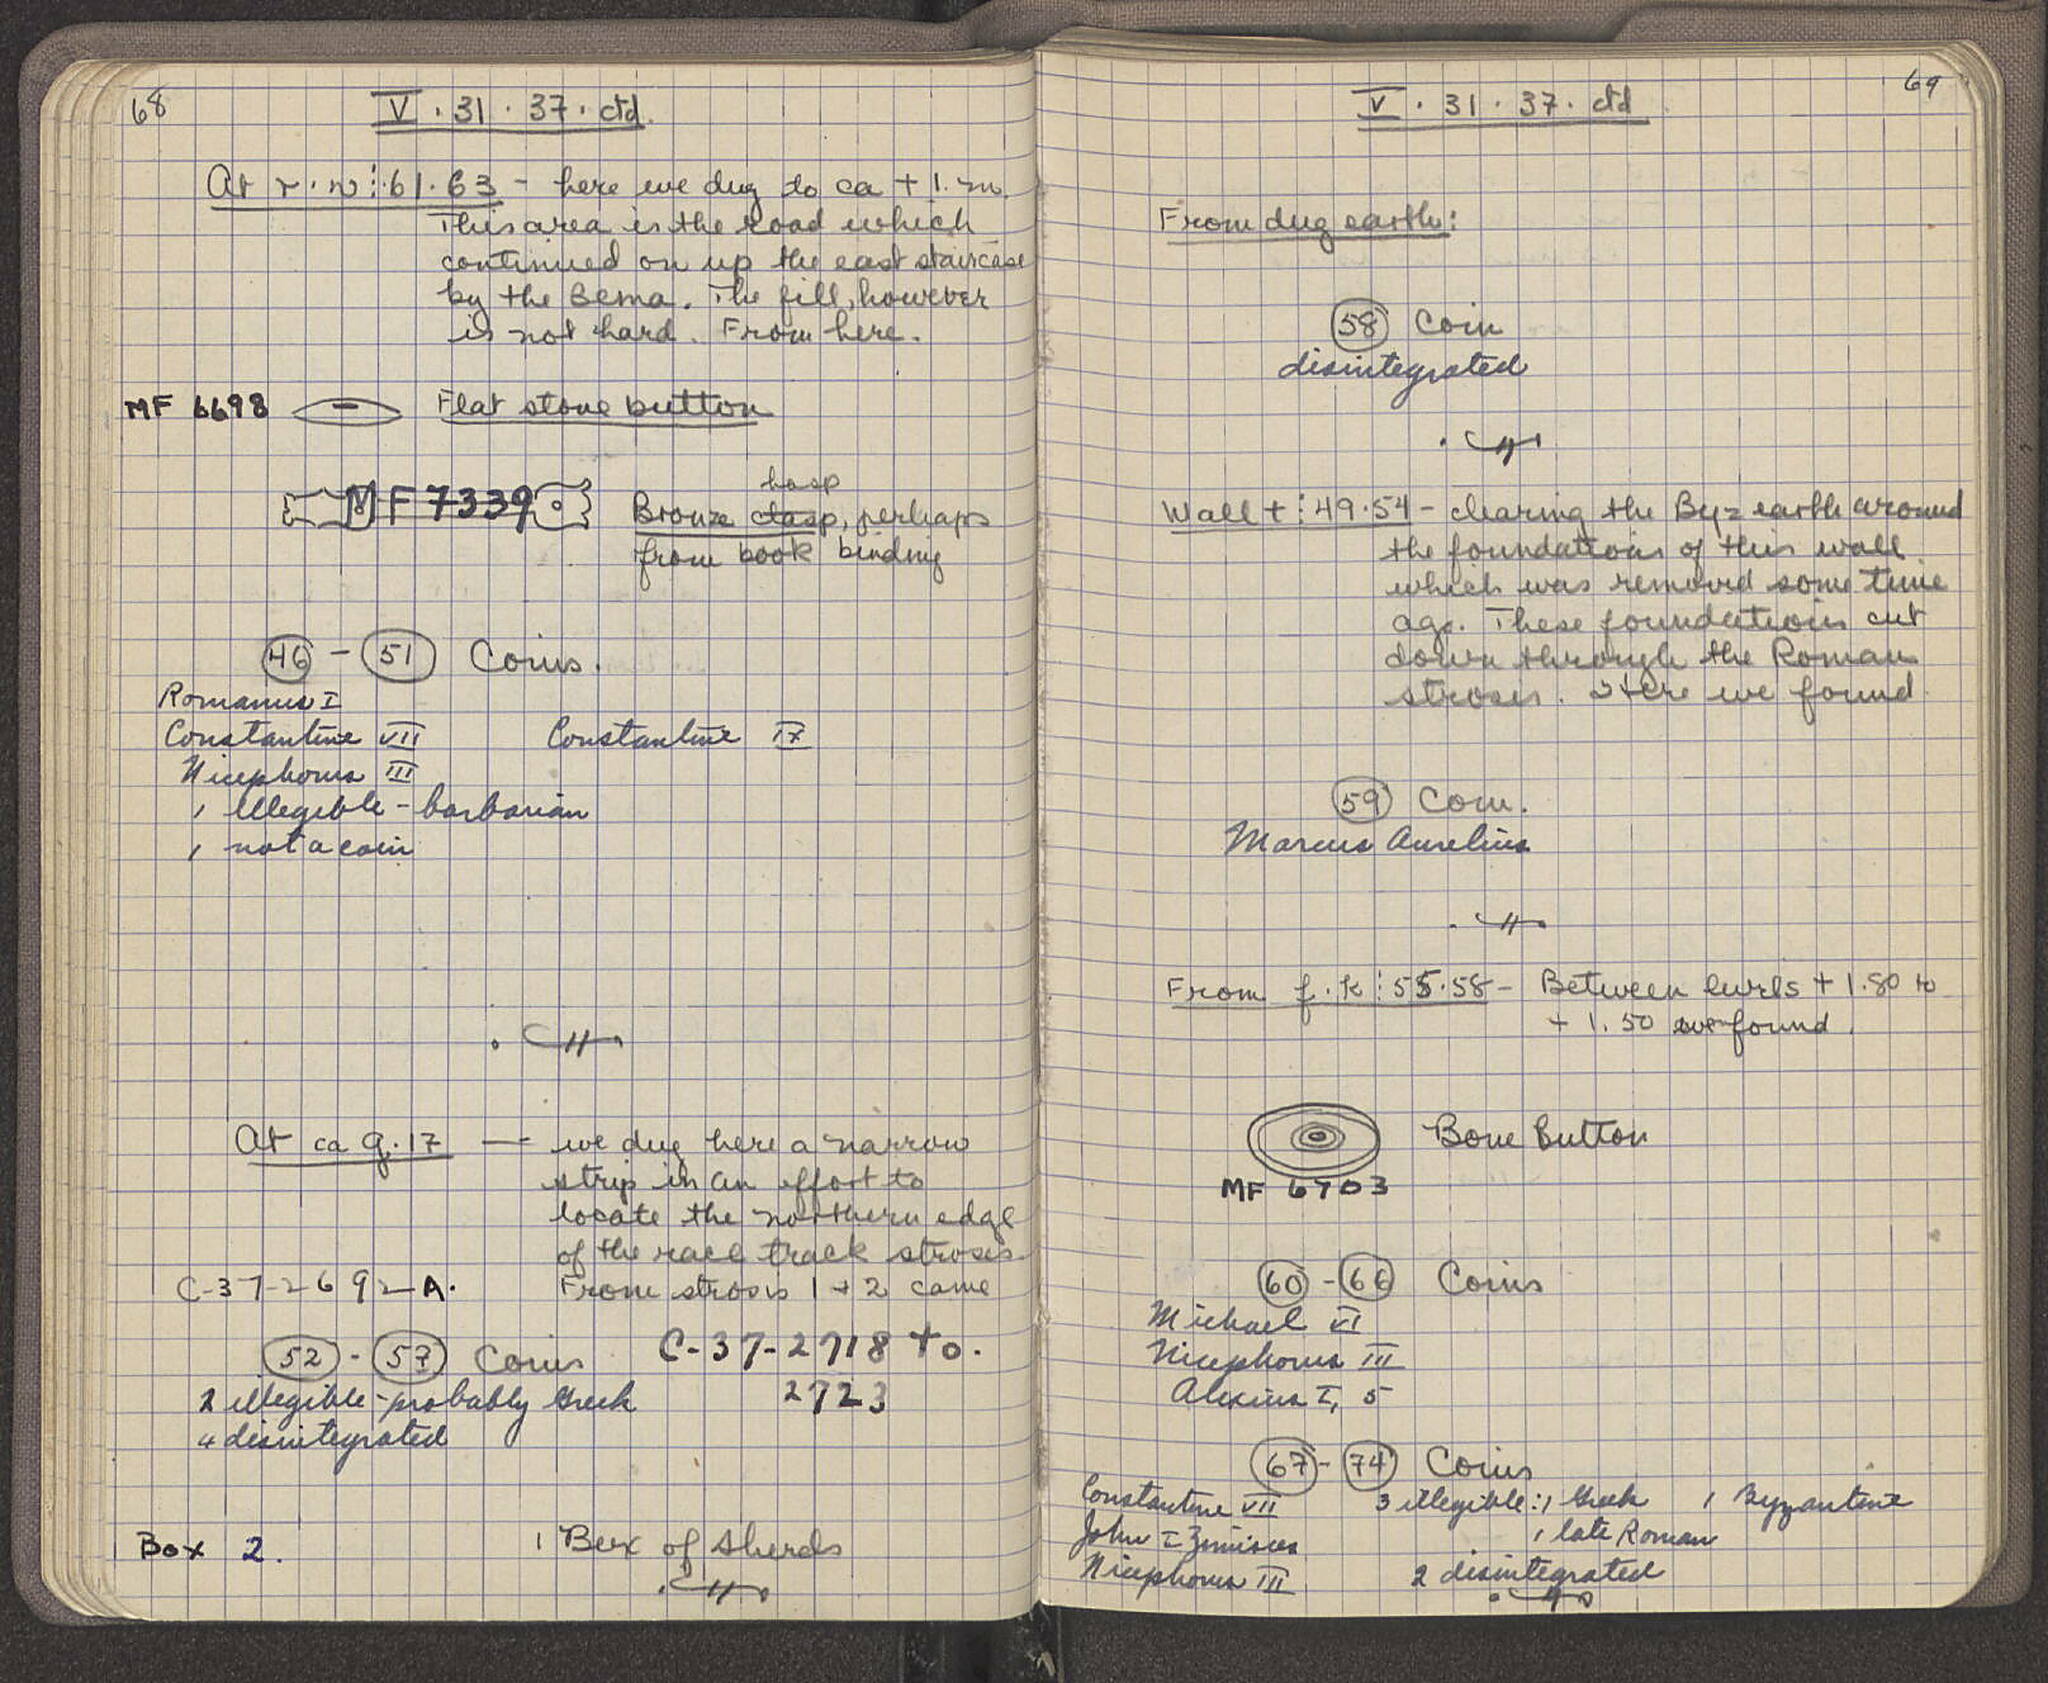 68
V · 31 · 37 · ctd.
At r·w:61·63 – here we dug to ca + 1. m.
This area is the road which
continued on up the east staircase
by the Bema. The fill, however
is not hard. From here.
MF 6698 Flat stone button
MF 7339
hasp
Bronze clasp, perhaps
from book binding
46 – 51 Coins.
Romanus I
Constantine VII Constantine IX
Nicephorus III
1 illegible – barbarian
1 not a coin
At ca q·17 — we dug here a narrow
strip in an effort to
locate the northern edge
of the race track stroses
C-37-2692-A. From strosis 1 + 2 came
52 - 57 Coins C-37-2718 to.
2 illegible – probably Greek 2723
4 disintegrated
Box 2. 1 Box of sherds
69
V · 31 · 37 · ctd
From dug earth:
58 Coin
disintegrated
Wall t:49·54 – clearing the Byz earth around
the foundations of this wall
which was removed some time
ago. These foundations cut
down through the Roman
stroses. Here we found
59 Coin.
Marcus Aurelius
From f·k:55·58 – Between levels + 1.80 to
+ 1.50 we found.
Bone button
MF 6703
60 - 66 Coins
Michael VI
Nicephorus III
Alexius I, 5
67 - 74 Coins
Constantine VII 3 illegible: 1 Greek 1 Byzantine
John I Zimisces 1 late Roman
Nicephorus III 2 disintegrated